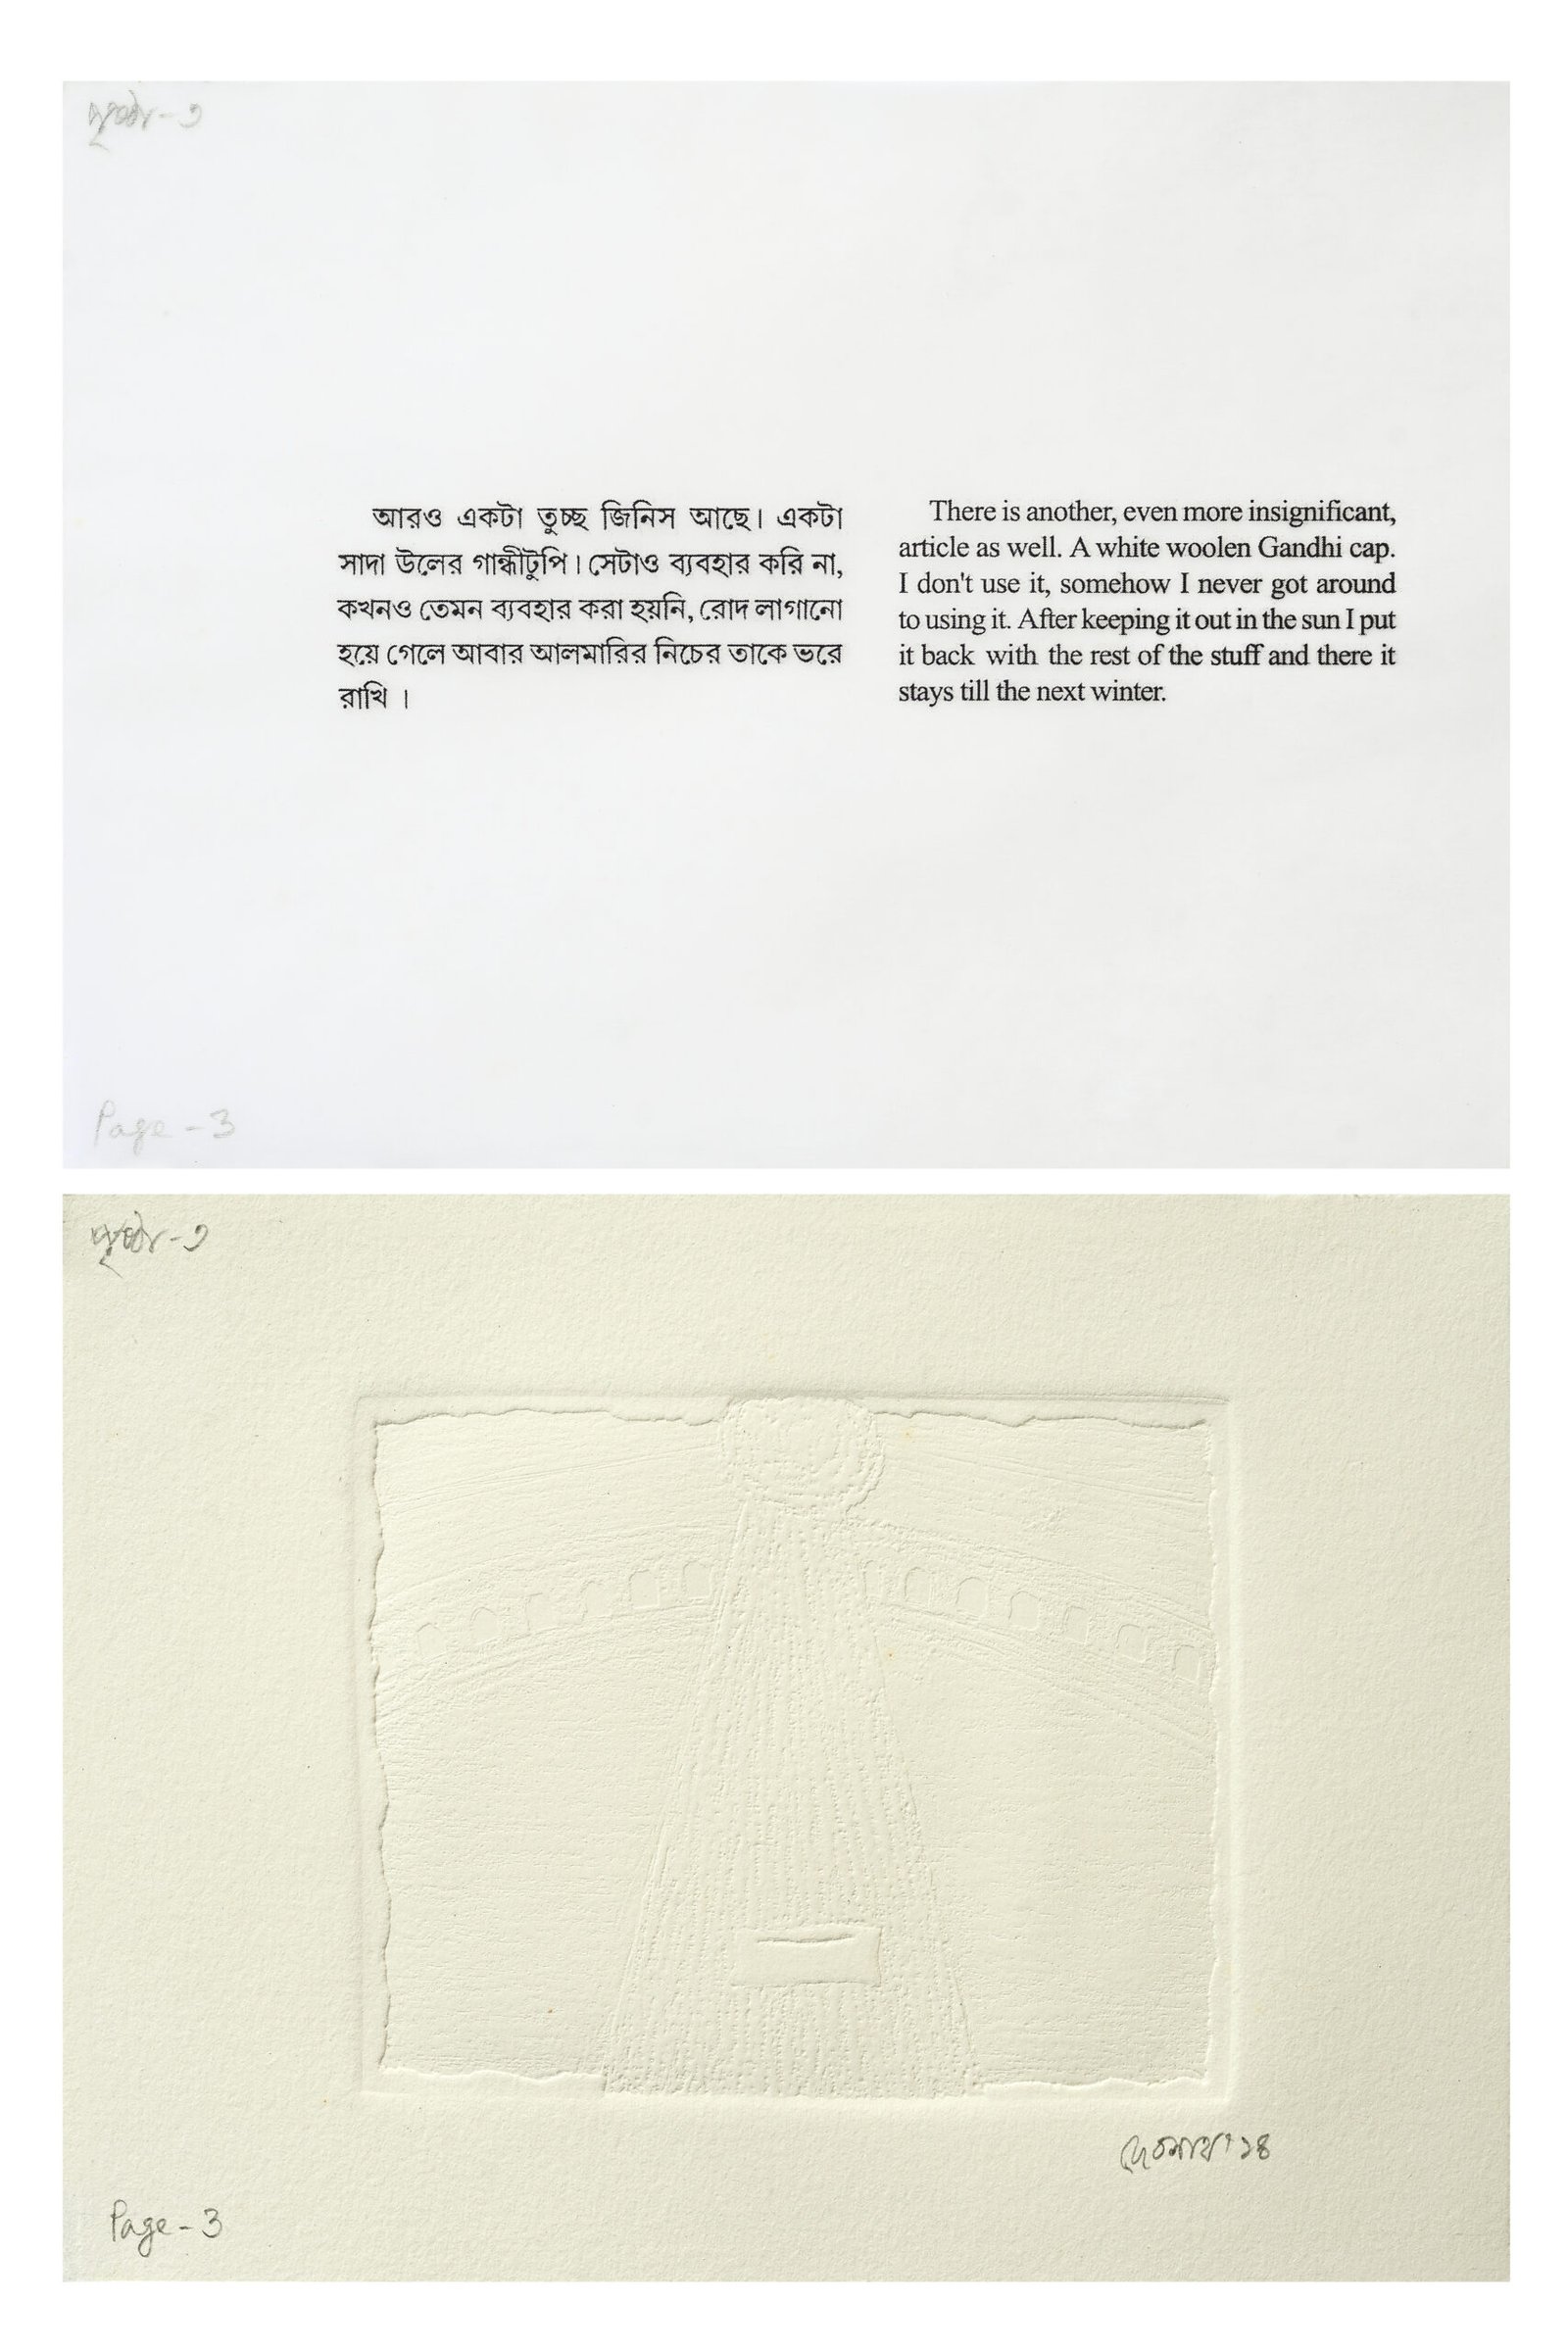 পৃষ্ঠা - ৩
আরও একটা তুচ্ছ জিনিস আছে। একটা
সাদা উলের গান্ধীটুপি। সেটাও ব্যবহার করি না,
কখনও তেমন ব্যবহার করা হয়নি, রোদ লাগানো
হয়ে গেলে আবার আলমারির নিচের তাকে ভরে
রাখি ।
There is another, even more insignificant,
article as well. A white woolen Gandhi cap.
I don't use it, somehow I never got around
to using it. After keeping it out in the sun I put
it back with the rest of the stuff and there it
stays till the next winter.
Page - 3
পৃষ্ঠা - ৩
Page - 3